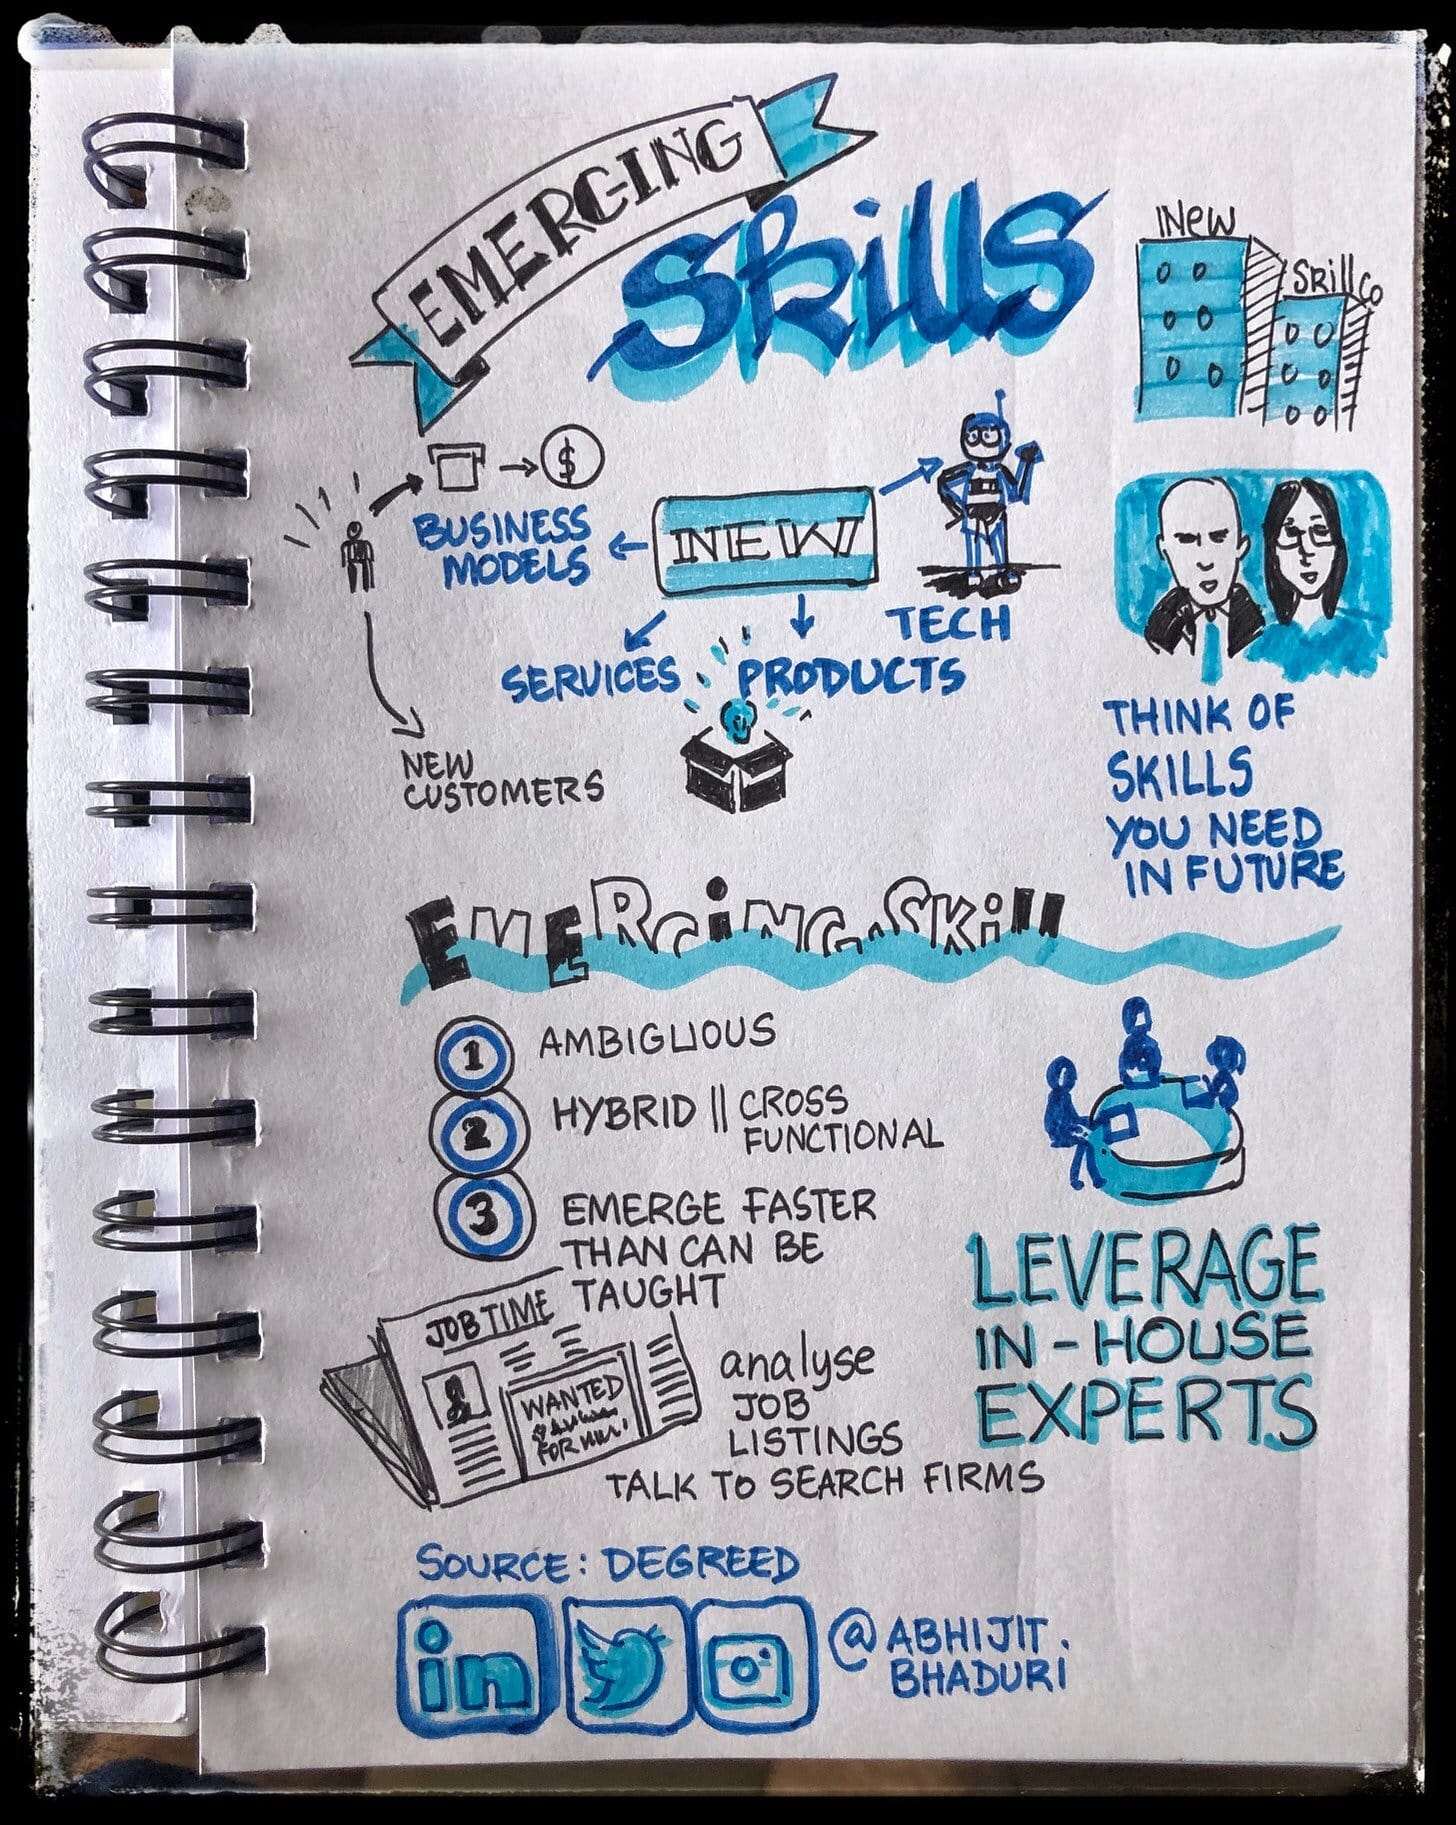 EMERGING
Skills
New
Skill Co
$
BUSINESS
MODELS
NEW
TECH
SERVICES
PRODUCTS
NEW
CUSTOMERS
THINK OF
SKILLS
YOU NEED
IN FUTURE
EMERGING SKill
1 AMBIGUOUS
2 HYBRID || CROSS
FUNCTIONAL
3 EMERGE FASTER
THAN CAN BE
TAUGHT
JOB TIME
WANTED
FOR
analyse
JOB
LISTINGS
TALK TO SEARCH FIRMS
LEVERAGE
IN-HOUSE
EXPERTS
SOURCE: DEGREED
in
@ABHIJIT.
BHADURI